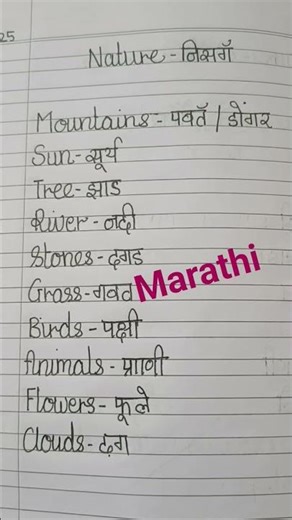 25
Nature - निसर्ग
Mountains - पर्वत / डोंगर
Sun - सूर्य
Tree - झाड
River - नदी
Stones - दगड
Grass - गवत
Marathi
Birds - पक्षी
Animals - प्राणी
Flowers - फूले
Clouds - ढग